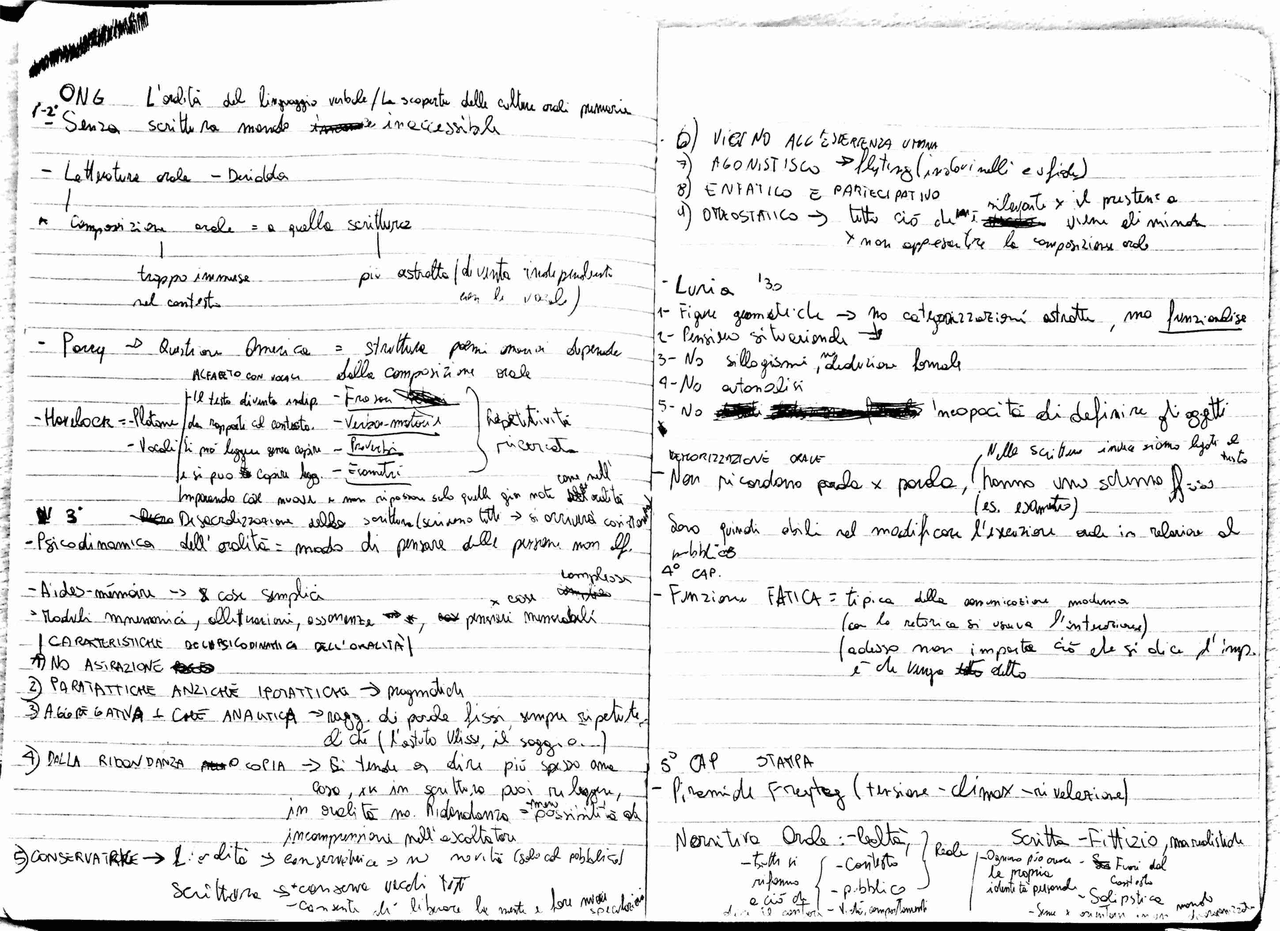 ONG L'oralità del linguaggio verbale/La scoperta delle culture orali primarie
1-2°
- Senza scrittura mondo inaccessibile
- Letteratura orale - Derida
* Composizione orale = a quella scrittura
troppo immersa
nel contesto
più astratta (diventa indipendente
con le vocali)
- Parry → Questione Omerica = struttura poemi omerici dipende
dalla composizione orale
ALFABETO CON VOCALI
- Il testo diventa indip.
da rapporto col contesto.
- Havelock = - Platone
- Vocali
Si può leggere senza capire
e si può copiare legg.
- Frasari
- Verso-motori
- Proverbi
- Esametri
Ripetitività
ricercata
Imparando cose nuove e non ripassan solo quelle già note come nell'oralità
3°
Desacralizzazione della scrittura (scrivono tutti → si
- Psicodinamica dell'oralità = modo di pensare delle persone non alf.
- Aides-mémoire → cose semplici
- Moduli mnemonici, allitterazioni, assonanze x cose complesse, pensieri memorabili
CARATTERISTICHE DELLA PSICODINAMICA DELL'ORALITÀ
1) NO ASTRAZIONE
2) PARATATTICHE ANZICHÉ IPOTATTICHE → pragmatich
3) AGGREGATIVA + CHE ANALITICA → ragg. di parole fissi, sempre ripetute
di chi (l'astuto Ulisse, il saggio...)
4) DALLA RIDONDANZA O COPIA → Si tende a dire più spesso una
cosa, xk in scrittura puoi rileggere,
in oralità no. Ridondanza = meno possibilità di
incomprensioni nell'ascoltatore
5) CONSERVATRICE → L'oralità → conservatrice → no novità (solo col pubblico)
Scrittura → conserva vecchi testi
- Consente di liberare la mente e fare nuove speculazioni
6) VICINO ALL'ESPERENZA UMANA
7) AGONISTICO → flyting (indovinelli e sfide)
8) ENFATICO E PARTECIPATIVO
9) OMEOSTATICO → tutto ciò che nn è rilevante x il presente viene eliminato
x non appesantire la composizione orale
- Luria '30
1- Figure geometriche → no categorizzazioni astratte, ma funzionalise
2- Pensiero situazionale
3- No sillogismi, no deduzione formale
4- No autoanalisi
5- No incapacità di definire gli oggetti
MEMORIZZAZIONE ORALE
(Nella scrittura invece siamo legati al testo
- Non ricordano parola x parola, hanno uno schema fisso
(es. esametro)
Sono quindi abili nel modificare l'esecuzione orale in relazione al
pubblico
4° CAP.
- Funzione FATICA = tipica della comunicazione moderna
(con la retorica si usava l'interazione)
(adesso non importa ciò che si dice, l'imp.
è che venga detto
5° CAP STAMPA
- Piramide Freytag (tensione - climax - rivelazione)
Narrativa Orale: - Coltà,
- tutti si
rifanno
a ciò che
dice il cantore
- Contesto
- pubblico
- Vicoli, comportamenti
Reale
Scritta - Fittizio,
- Ognuno può avere
la propria
identità personale
- Fuori dal
Contesto
- Solipstica